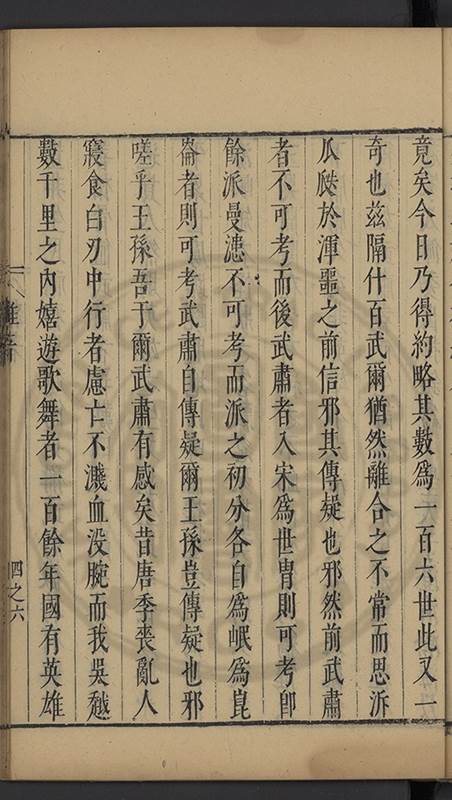 竟矣今日乃得約略其數爲一百六世此又一
奇也茲隔什百武爾猶然離合之不常而思泝
瓜瓞於渾噩之前信邪其傳疑也邪然前武肅
者不可考而後武肅者入宋爲世胄則可考卽
餘派曼漶不可考而派之初分各自爲岷爲崑
崙者則可考武肅自傳疑爾王孫豈傳疑也邪
嗟乎王孫吾于爾武肅有感矣昔唐季喪亂人
寢食白刃中行者慮亡不濺血没腕而我吳越
數千里之內嬉遊歌舞者一百餘年國有英雄
四之六